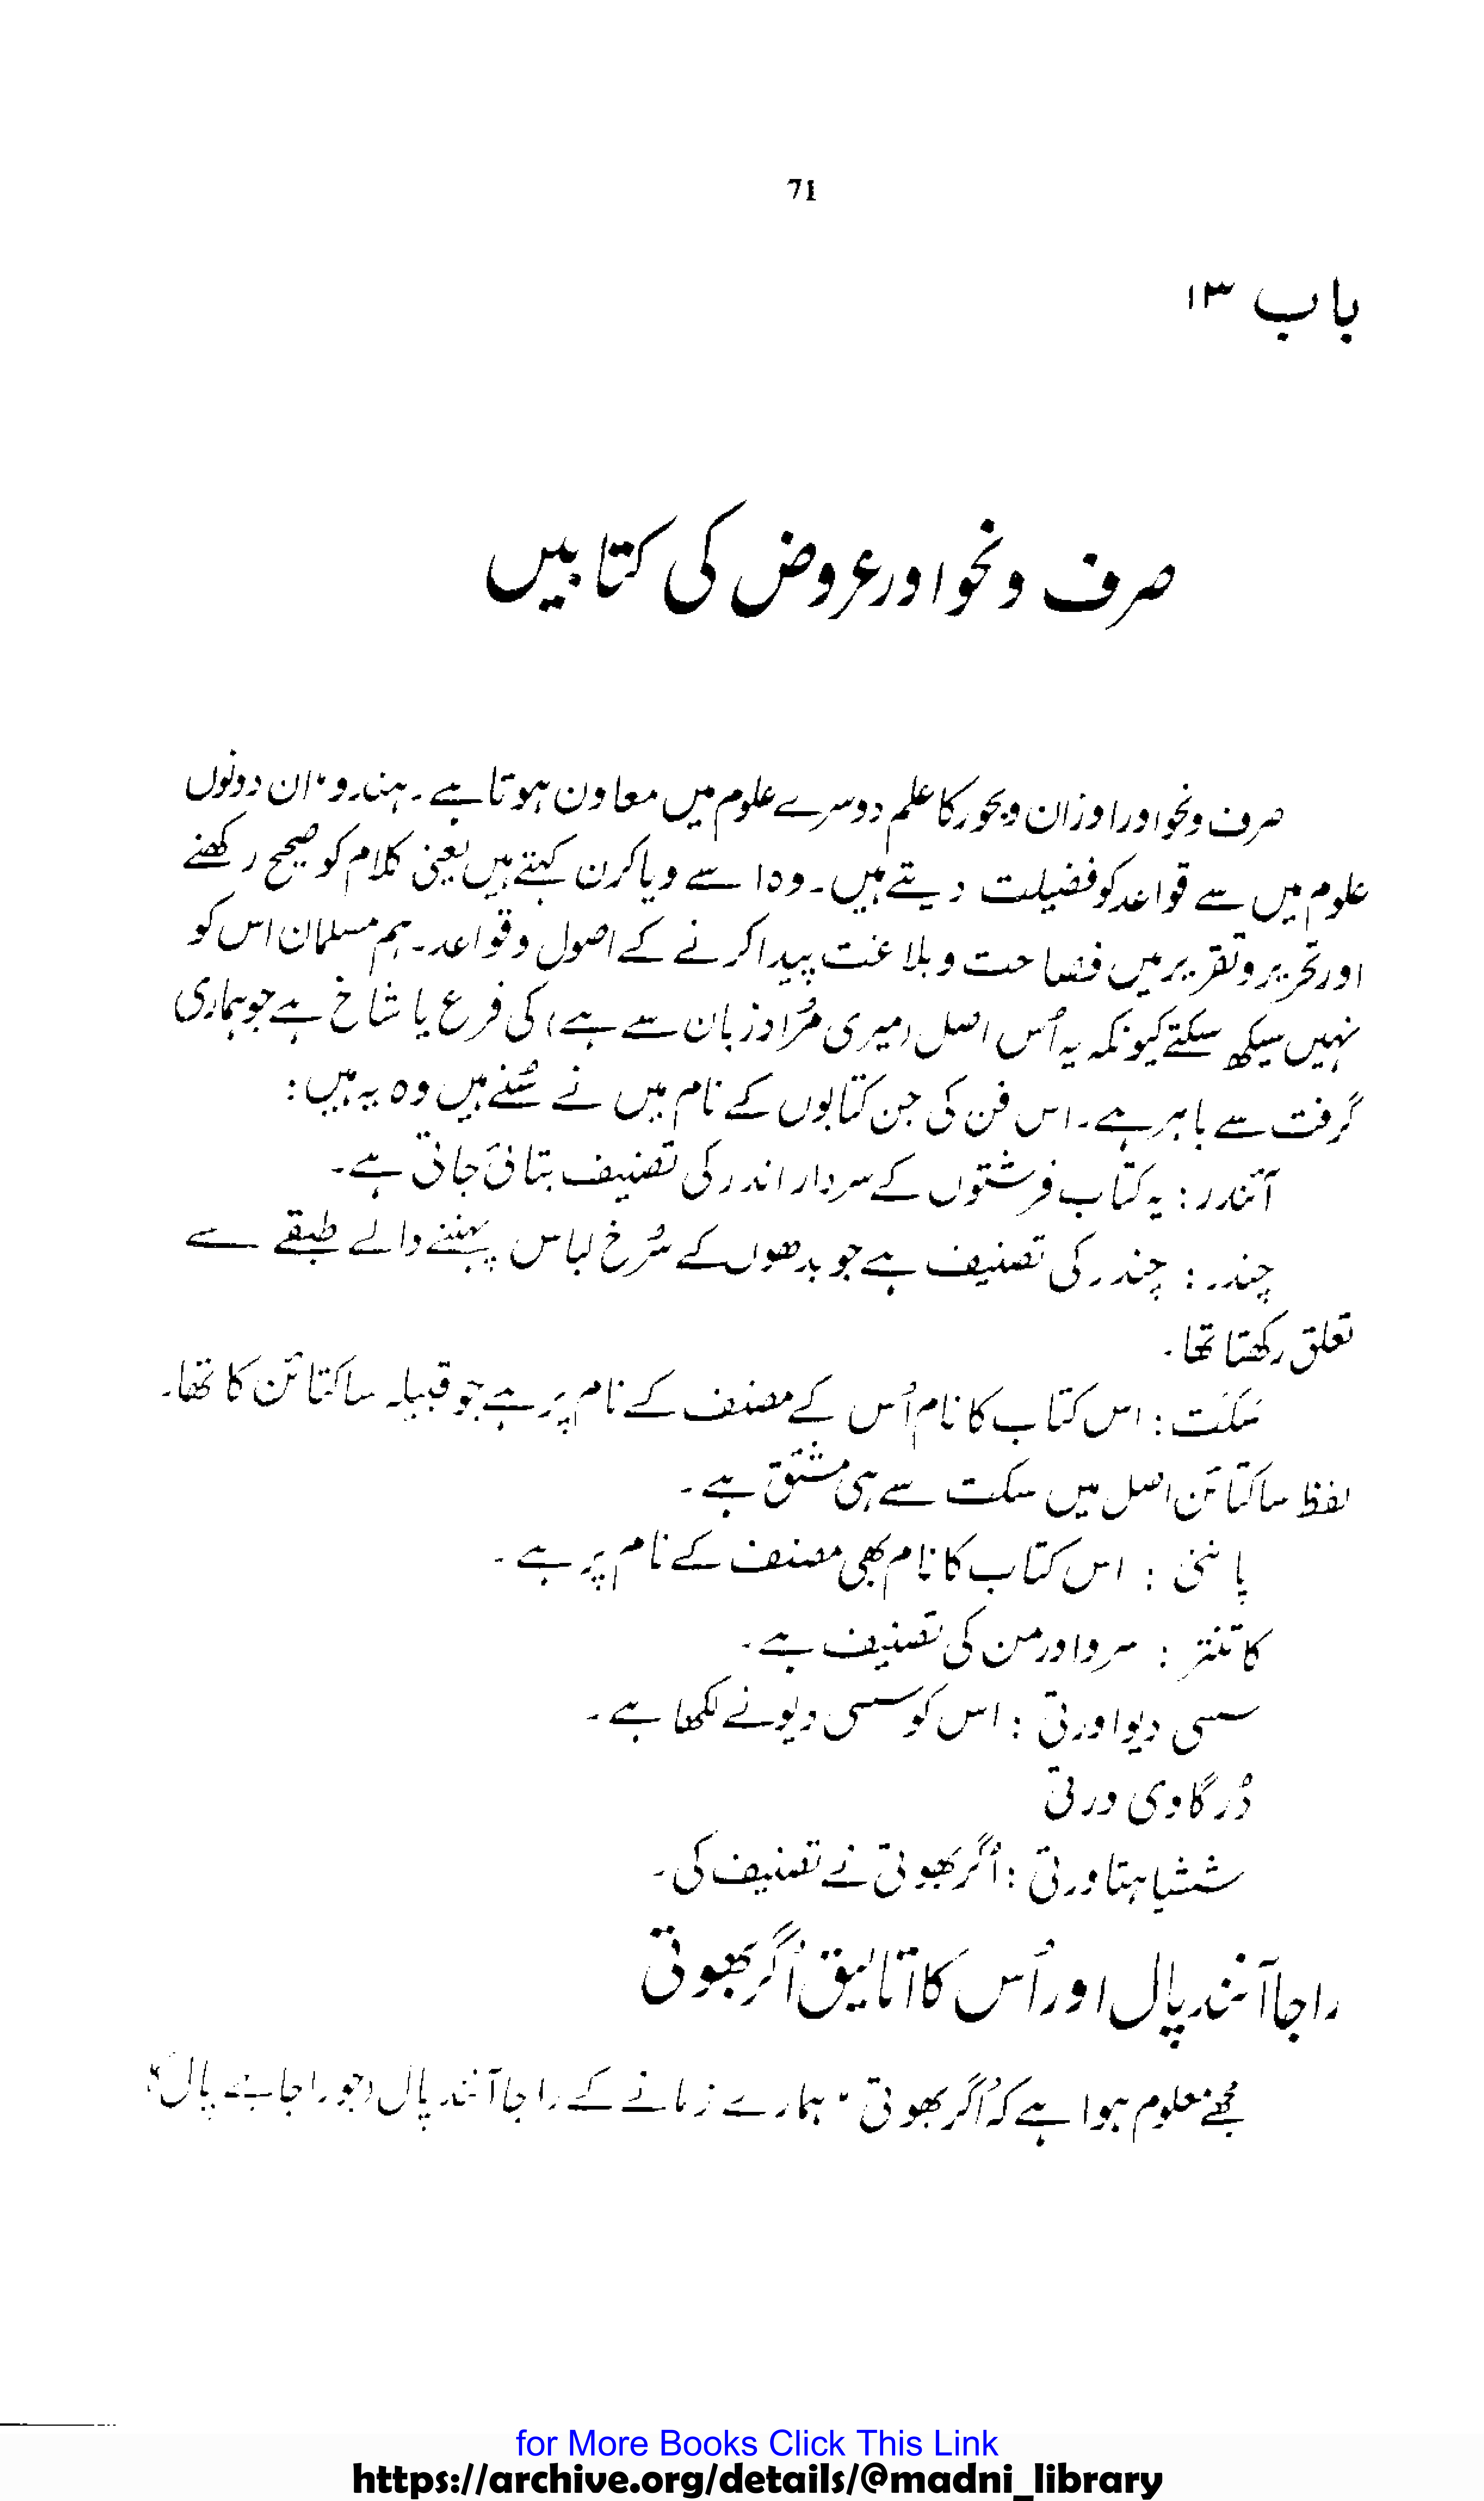 71
باب ۱۳
صرف و نحو اور عروض کی کتابیں
صرف و نحو اور اوزان و بحور کا علم دوسرے علوم میں معاون ہوتا ہے۔ ہندو، ان دونوں
علوم میں سے قواعد کو فضیلت دیتے ہیں۔ وہ اسے ویاکرن کہتے ہیں یعنی کلام کو صحیح رکھنے
اور تحریر و تقریر میں فصاحت و بلاغت پیدا کرنے کے اصول و قواعد۔ ہم مسلمان اس کو
نہیں سیکھ سکتے کیونکہ یہ اُس اصل (میری مُراد زبان سے ہے) کی فرع یا شاخ ہے جو ہماری
گرفت سے باہر ہے۔ اس فن کی جن کتابوں کے نام میں نے سُنے ہیں وہ یہ ہیں:
آئندر: یہ کتاب فرشتوں کے سردار اندر کی تصنیف بتائی جاتی ہے۔
چندر: چندر کی تصنیف ہے جو بدھوں کے سُرخ لباس پہننے والے طبقے سے
تعلق رکھتا تھا۔
سَکَت: اس کتاب کا نام اُس کے مصنف کے نام پر ہے جو قبیلہ ساکتائن کا تھا۔
لفظ ساکتائن اصل میں سکت سے ہی مشتق ہے۔
پاننی: اس کتاب کا نام بھی مصنف کے نام پر ہے۔
کاتنتر: سروا ورمن کی تصنیف ہے۔
سسی دیوا ورتی: اس کو سسی دیو نے لکھا ہے۔
دُرگا وی ورتی
ششیا ہتا ورتی: اُگر بھوتی نے تصنیف کی۔
راجا آنند پال اور اُس کا اتالیق اُگر بھوتی
مجھے معلوم ہوا ہے کہ اُگر بھوتی، ہمارے زمانے کے راجا آنند پال (جو راجا جے پال کا
for More Books Click This Link
https://archive.org/details/@madni_library